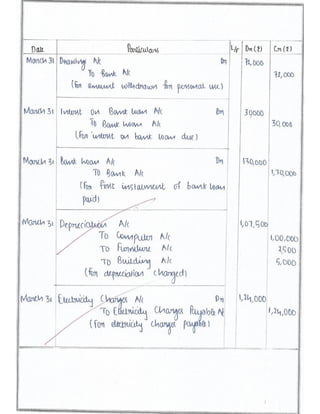 Date Particulars L/F Dr (₹) Cr (₹)
March 31 Drawing A/c Dr 72,000
To Bank A/c 72,000
(For amount withdrawn for personal use)
March 31 Interst on Bank loan A/c Dr 30000
To Bank loan A/c 30,000
(For interst on bank loan due)
March 31 Bank loan A/c Dr 1,70,000
To Bank A/c 1,70,000
(For first instalment of bank loan
paid)
March 31 Depreciation A/c 1,07,500
To Computer A/c 1,00,000
To Furniture A/c 2,500
To Building A/c 5,000
(for depreciation charged)
March 31 Electricity Charges A/c Dr 1,24,000
To Electricity Charges Payable A/c 1,24,000
(For electricity charges payable)